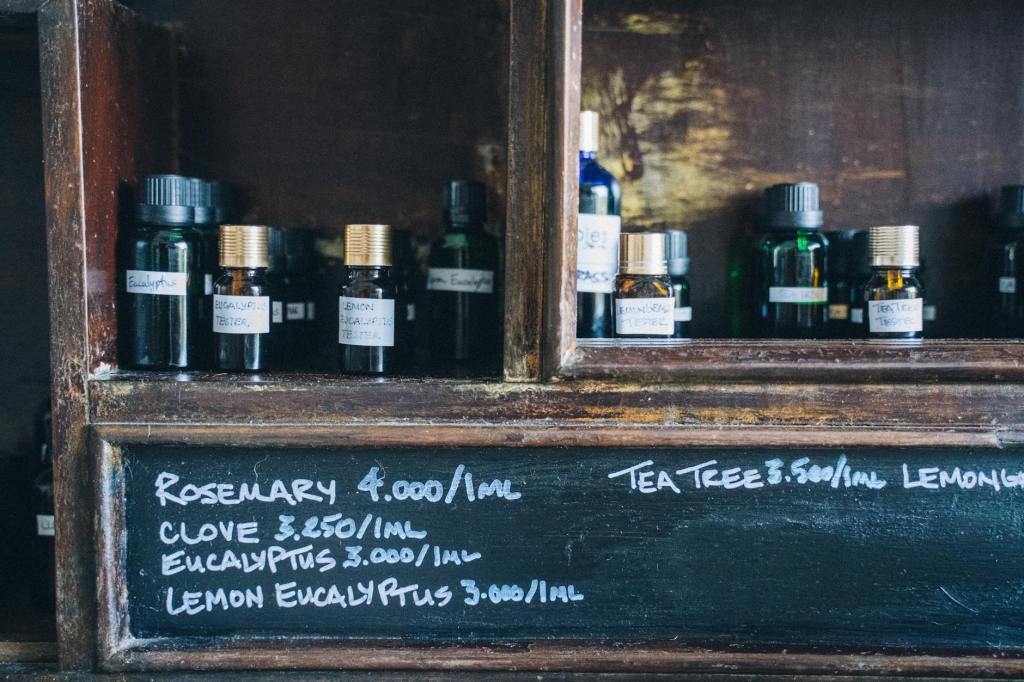 Eucalyptus
EUCALYPTUS
TESTER
LEMON
EUCALYPTUS
TESTER
Lemon Eucalyptus
LEMONGRASS
TESTER
TEA TREE
TEA TREE
TESTER
ROSEMARY 4.000/1ML
CLOVE 3.250/1ML
EUCALYPTUS 3.000/1ML
LEMON EUCALYPTUS 3.000/1ML
TEA TREE 3.500/1ML LEMONG